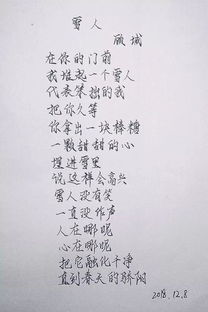 雪人
顾城
在你的门前
我堆起一个雪人
代表笨拙的我
把你久等
你拿出一块棒糖
一颗甜甜的心
埋进雪里
说这样会高兴
雪人没有笑
一直没作声
人在哪呢
心在哪呢
把它融化干净
直到春天的骄阳
2018.12.8